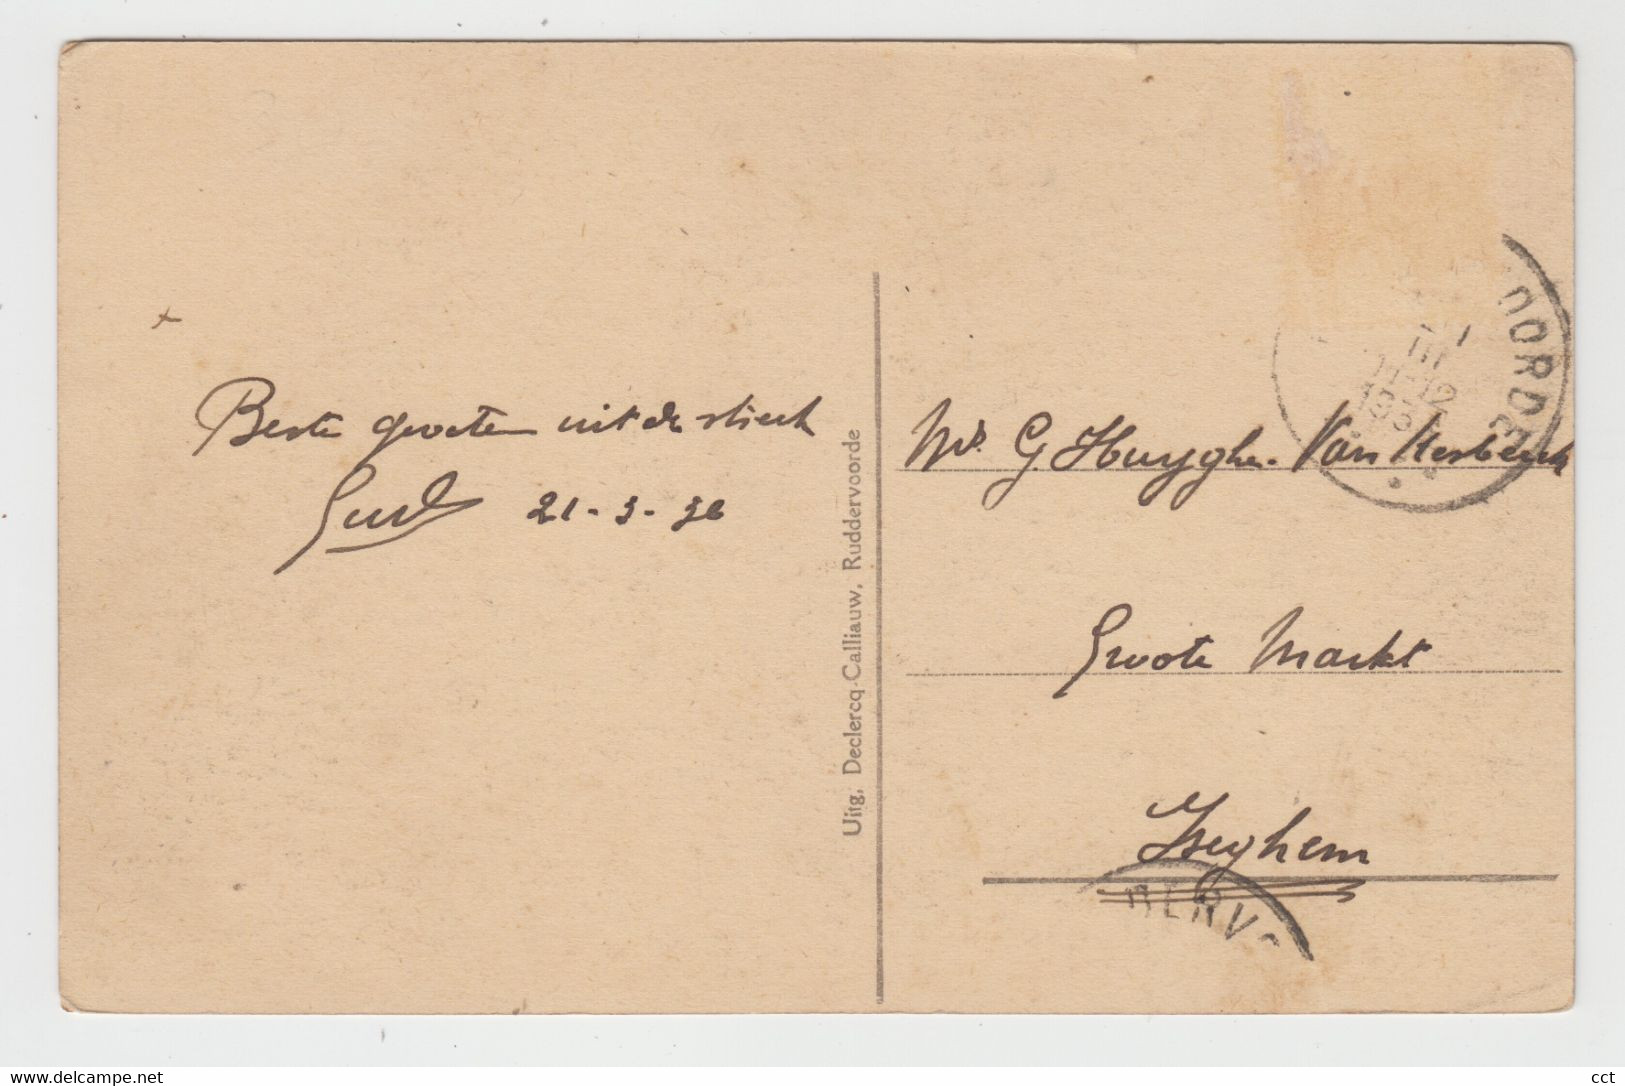 Beste groeten uit de streek
21-3-36
Uitg. Declercq-Calliauw, Ruddervoorde
OORDE
III
11-12
193
G. Huyghe - Van
Groote Markt
Iseghem
DERVO
www.delcampe.net
cct